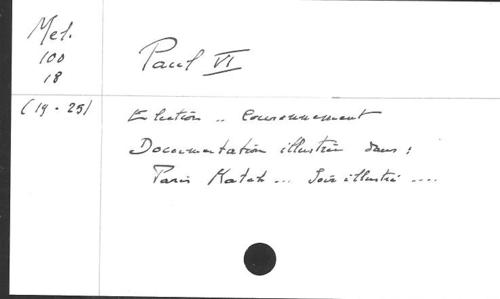 Mel.
100
18
Paul VI
(19-25)
Election .. Couronnement
Documentation illustrée dans :
Paris Match ... Soir illustré ....